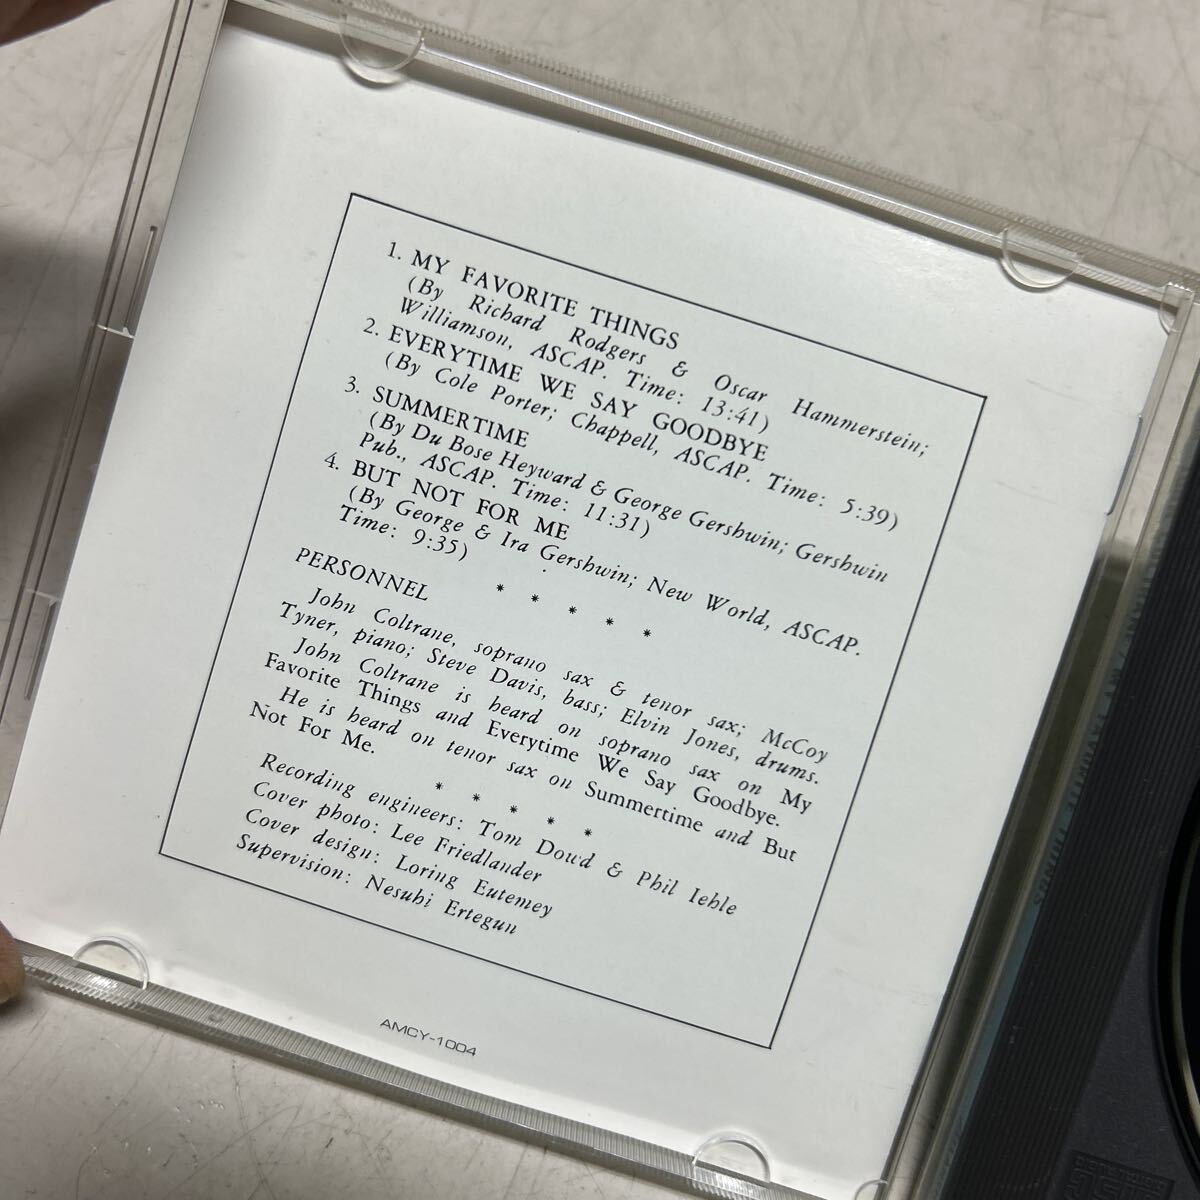 1. MY FAVORITE THINGS
(By Richard Rodgers & Oscar Hammerstein;
Williamson, ASCAP. Time: 13:41)
2. EVERYTIME WE SAY GOODBYE
(By Cole Porter; Chappell, ASCAP. Time: 5:39)
3. SUMMERTIME
(By Du Bose Heyward & George Gershwin; Gershwin
Pub., ASCAP. Time: 11:31)
4. BUT NOT FOR ME
(By George & Ira Gershwin; New World, ASCAP.
Time: 9:35)
* * * * *
PERSONNEL
John Coltrane, soprano sax & tenor sax; McCoy
Tyner, piano; Steve Davis, bass; Elvin Jones, drums.
John Coltrane is heard on soprano sax on My
Favorite Things and Everytime We Say Goodbye.
He is heard on tenor sax on Summertime and But
Not For Me.
* * * * *
Recording engineers: Tom Dowd & Phil Iehle
Cover photo: Lee Friedlander
Cover design: Loring Eutemey
Supervision: Nesuhi Ertegun
AMCY-1004